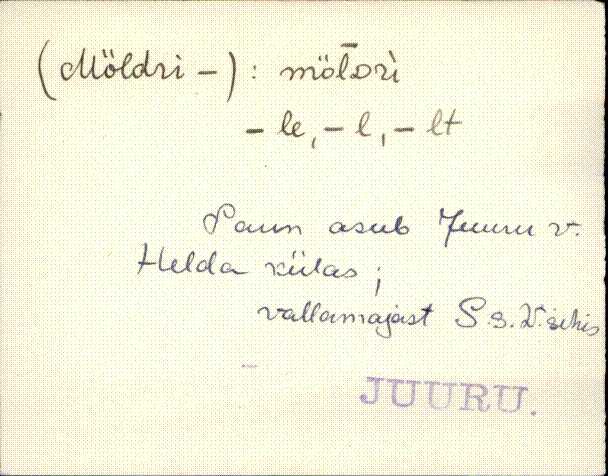 (Möldri -) : möl̄Dri̖
- le, - l, - lt
Paun asub Juuru v.
Helda külas;
vallamajast S.s.
JUURU.